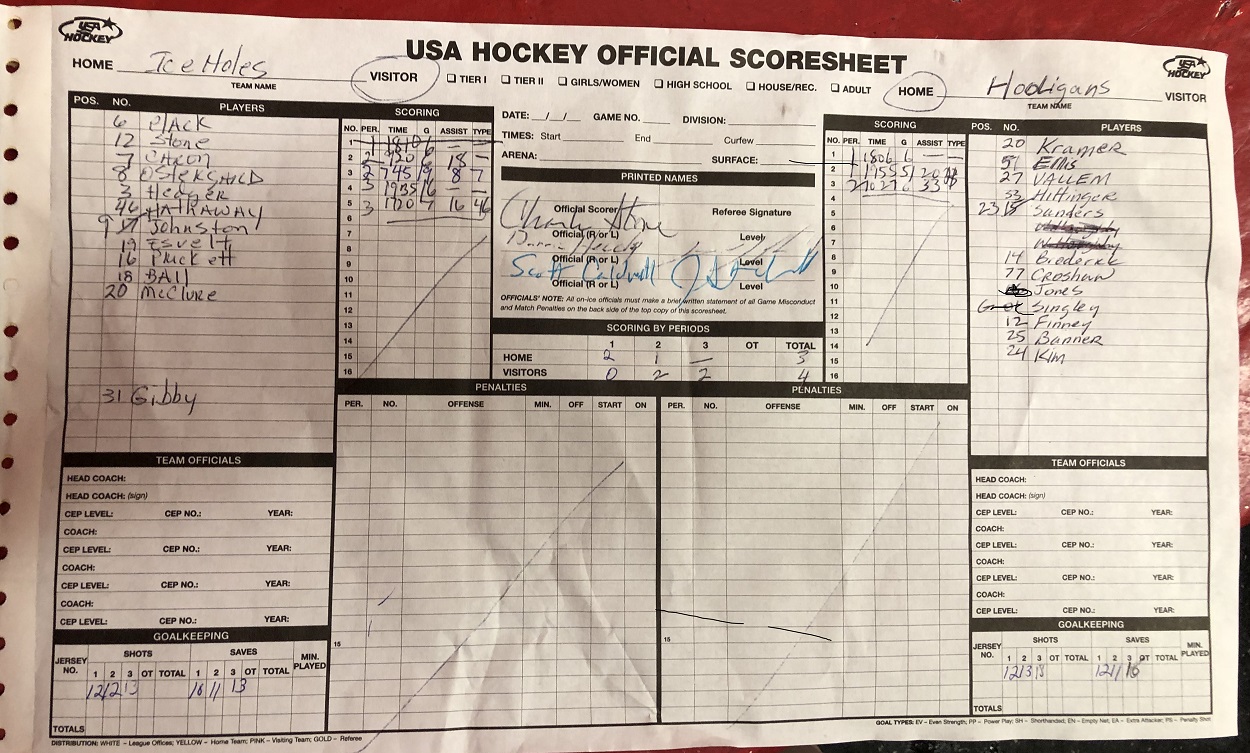 USA HOCKEY
USA HOCKEY
USA HOCKEY OFFICIAL SCORESHEET
HOME Ice Holes VISITOR
TEAM NAME
☐ TIER I ☐ TIER II ☐ GIRLS/WOMEN ☐ HIGH SCHOOL ☐ HOUSE/REC. ☐ ADULT
HOME Hooligans VISITOR
TEAM NAME
POS. NO. PLAYERS
6
12 Stone
7
8
3 Hedger
46 HATHAWAY
9 Johnston
19 Esvelt
16 Pluckett
18 BAll
20 McClure
31 Gibby
SCORING
NO. PER. TIME G ASSIST TYPE
1
2 2 18 —
3 2 745 19 8 7
4 3 1935 16 — —
5 3 16 46
6
7
8
9
10
11
12
13
14
15
16
DATE: __/__/__ GAME NO. DIVISION:
TIMES: Start End Curfew
ARENA: SURFACE:
PRINTED NAMES
Official Scorer Referee Signature
Official (R or L) Level
Official (R or L) Level
Scott Caldwell
Official (R or L) Level
OFFICIALS' NOTE: All on-ice officials must make a brief written statement of all Game Misconduct
and Match Penalties on the back side of the top copy of this scoresheet.
SCORING BY PERIODS
1 2 3 OT TOTAL
HOME 2 1 — 3
VISITORS 0 2 2 4
SCORING
NO. PER. TIME G ASSIST TYPE
1 1 1806 6 — —
2 1 20
3 2 33
4
5
6
7
8
9
10
11
12
13
14
15
16
POS. NO. PLAYERS
20 Kramer
51 Ellis
27 VALLEM
53 Hittinger
23 Sanders
14 Broderick
77 CROSHAW
Jones
Singley
12 Finney
25 Banner
24 Kim
PENALTIES
PER. NO. OFFENSE MIN. OFF START ON
15
PENALTIES
PER. NO. OFFENSE MIN. OFF START ON
15
TEAM OFFICIALS
HEAD COACH:
HEAD COACH: (sign)
CEP LEVEL: CEP NO.: YEAR:
COACH:
CEP LEVEL: CEP NO.: YEAR:
COACH:
CEP LEVEL: CEP NO.: YEAR:
COACH:
CEP LEVEL: CEP NO.: YEAR:
GOALKEEPING
JERSEY NO. SHOTS SAVES MIN. PLAYED
1 2 3 OT TOTAL 1 2 3 OT TOTAL
12 12 13 10 11 13
TOTALS
TEAM OFFICIALS
HEAD COACH:
HEAD COACH: (sign)
CEP LEVEL: CEP NO.: YEAR:
COACH:
CEP LEVEL: CEP NO.: YEAR:
COACH:
CEP LEVEL: CEP NO.: YEAR:
COACH:
CEP LEVEL: CEP NO.: YEAR:
GOALKEEPING
JERSEY NO. SHOTS SAVES MIN. PLAYED
1 2 3 OT TOTAL 1 2 3 OT TOTAL
12 13 18 12 11 16
TOTALS
DISTRIBUTION: WHITE – League Offices; YELLOW – Home Team; PINK – Visiting Team; GOLD – Referee
GOAL TYPES: EV – Even Strength; PP – Power Play; SH – Shorthanded; EN – Empty Net; EA – Extra Attacker; PS – Penalty Shot